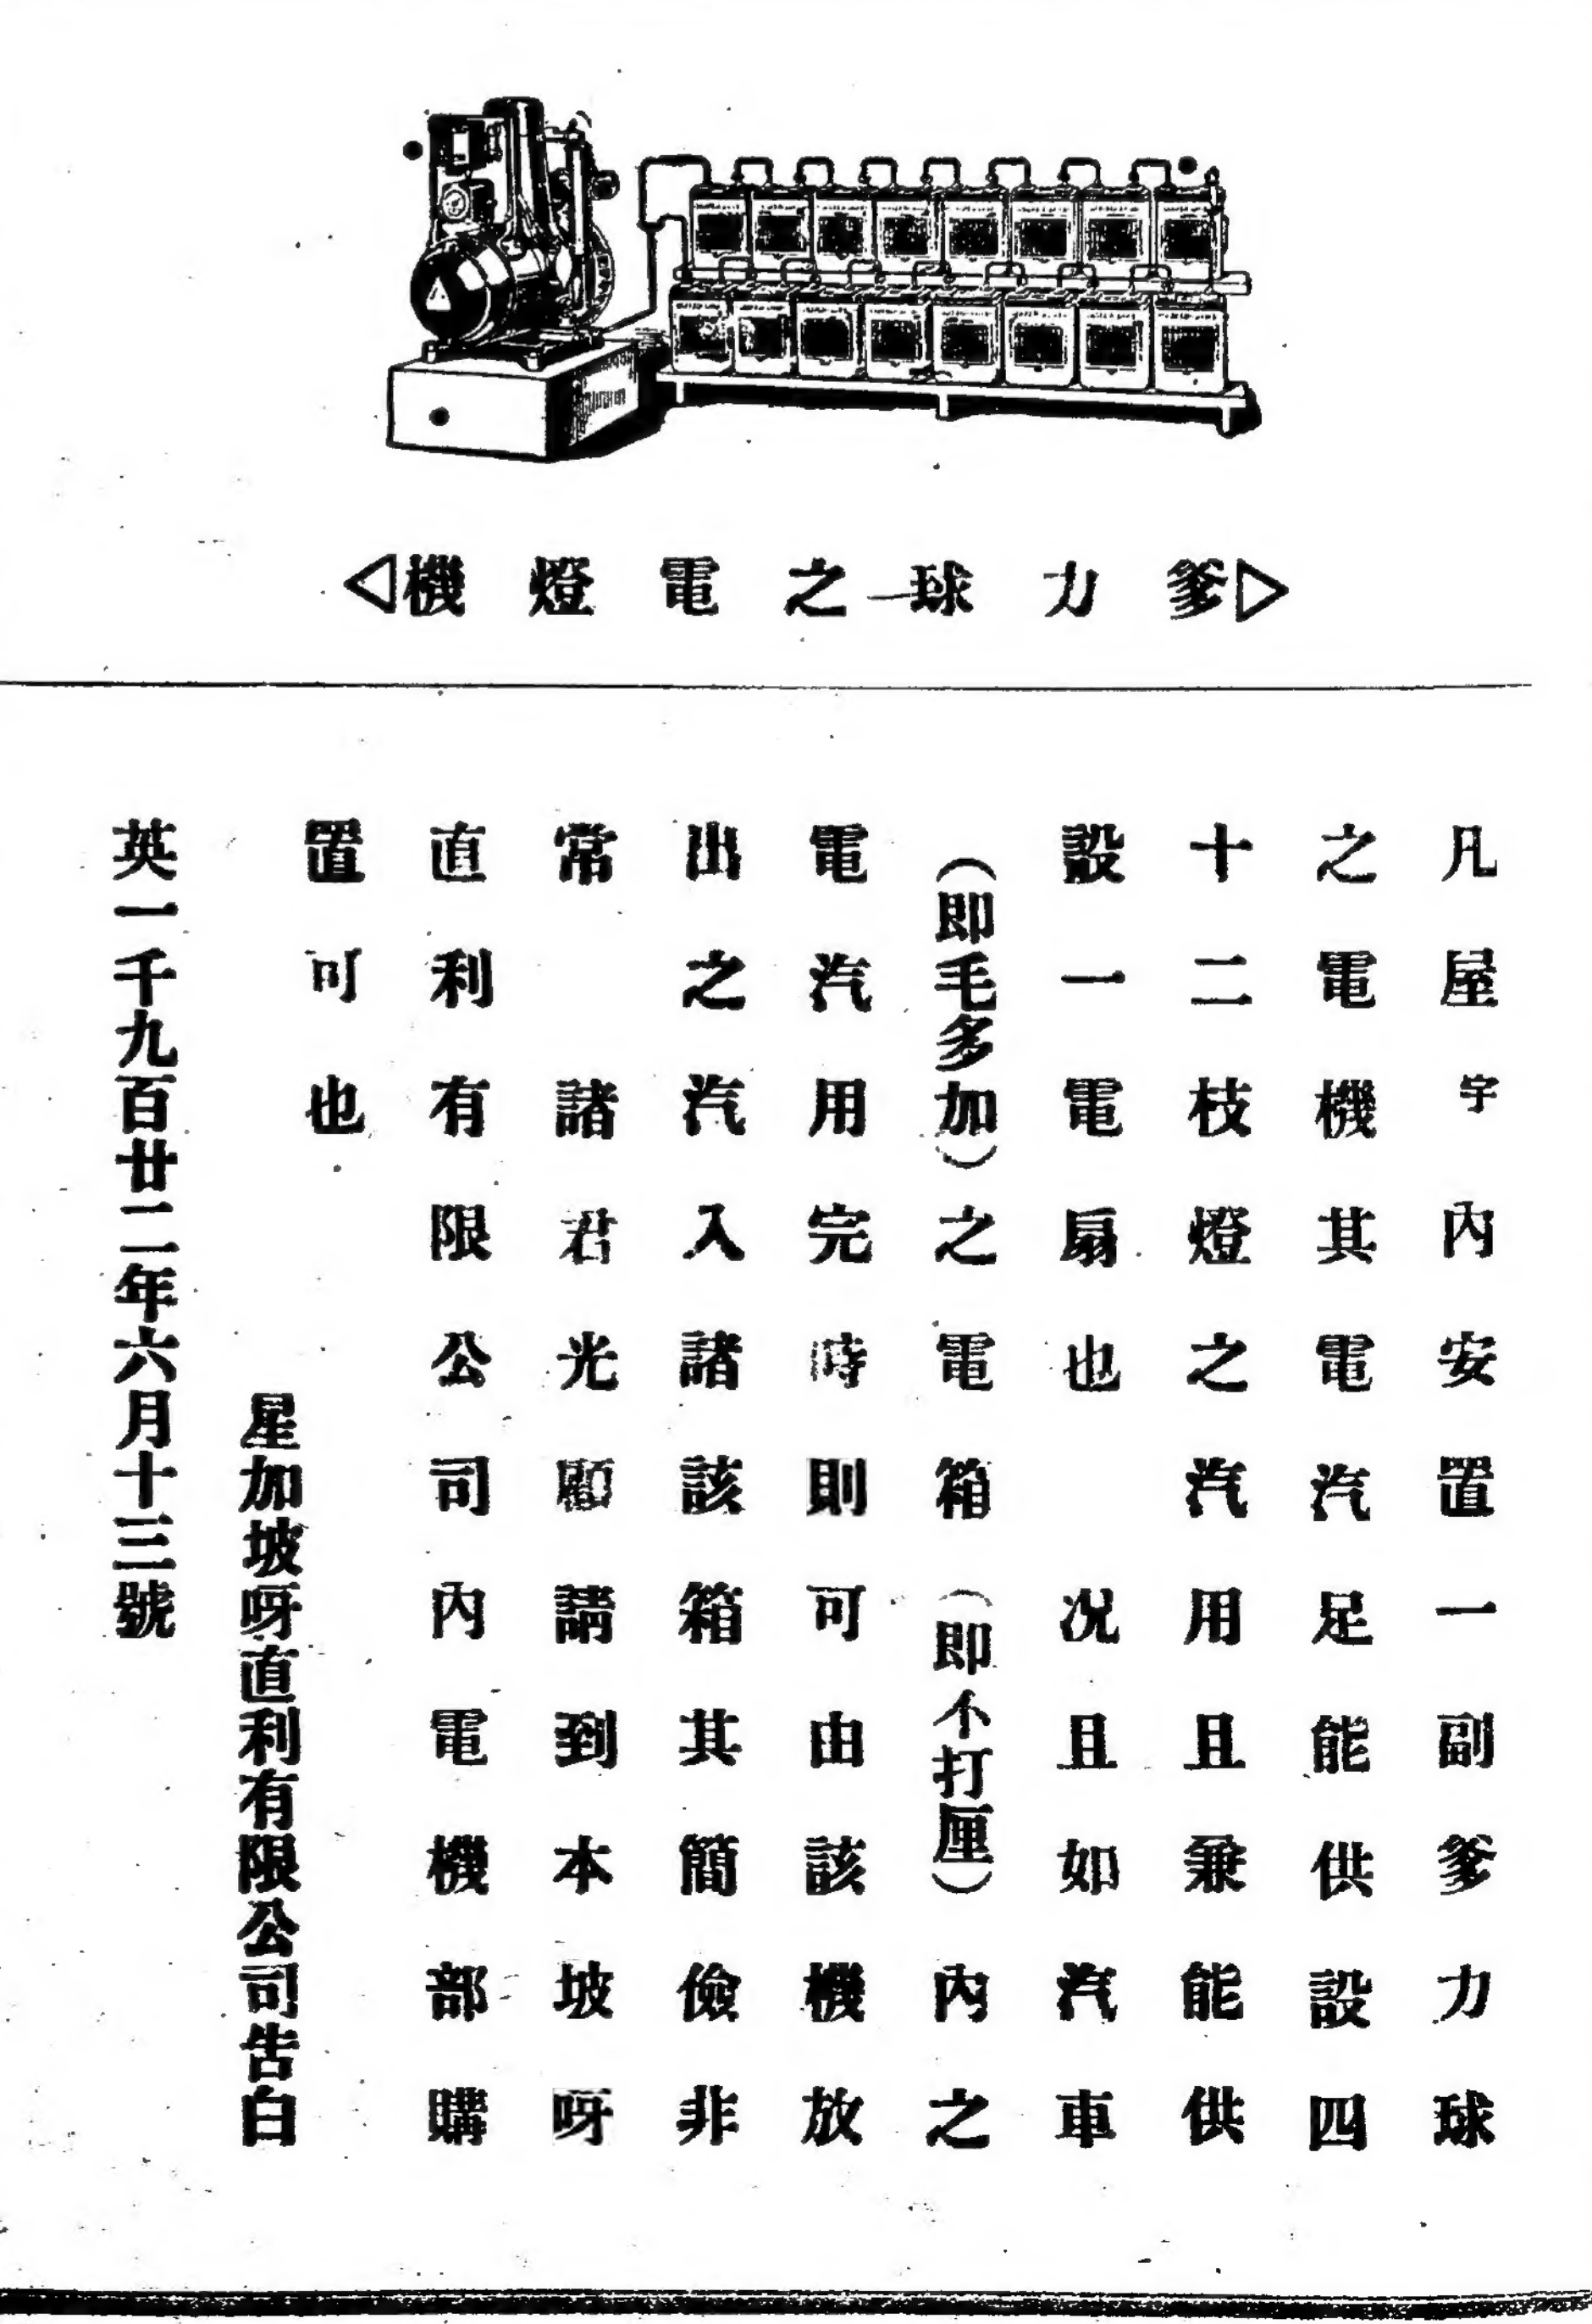 爹力球之電燈機
凡屋宇內安置一副爹力球
之電機其電汽足能供設四
十二枝燈之汽用且兼能供
設一電扇也况且如汽車
（即毛多加）之電箱（即不打厘）內之
電汽用完時則可由該機放
出之汽入諸該箱其簡儉非
常諸君光顧請到本坡呀
直利有限公司內電機部購
置可也
星加坡呀直利有限公司告白
英一千九百廿二年六月十三號